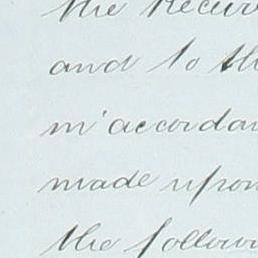 the Recur
and to th
in accordan
made upon
the follow